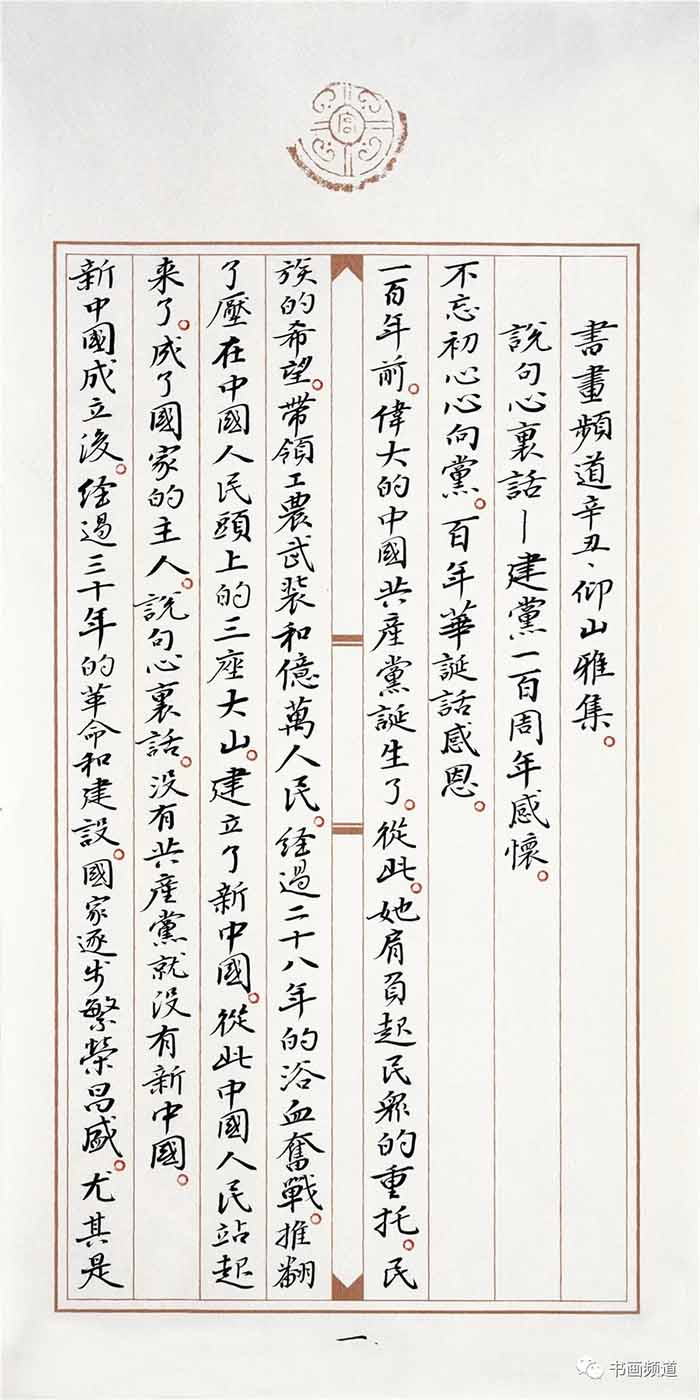 宫
書畫頻道辛丑、仰山雅集。
說句心裏話—建黨一百周年感懷。
不忘初心心向黨。百年華誕話感恩。
一百年前。偉大的中國共産黨誕生了。從此。她肩負起民衆的重托。民
族的希望。带領工農武装和億萬人民。経過二十八年的浴血奮戰。推翻
了壓在中國人民頭上的三座大山。建立了新中國。從此中國人民站起
来了。成了國家的主人。說句心裏話。没有共産黨就没有新中國。
新中國成立後。経過三十年的革命和建設。國家逐步繁榮昌盛。尤其是
一
书画频道